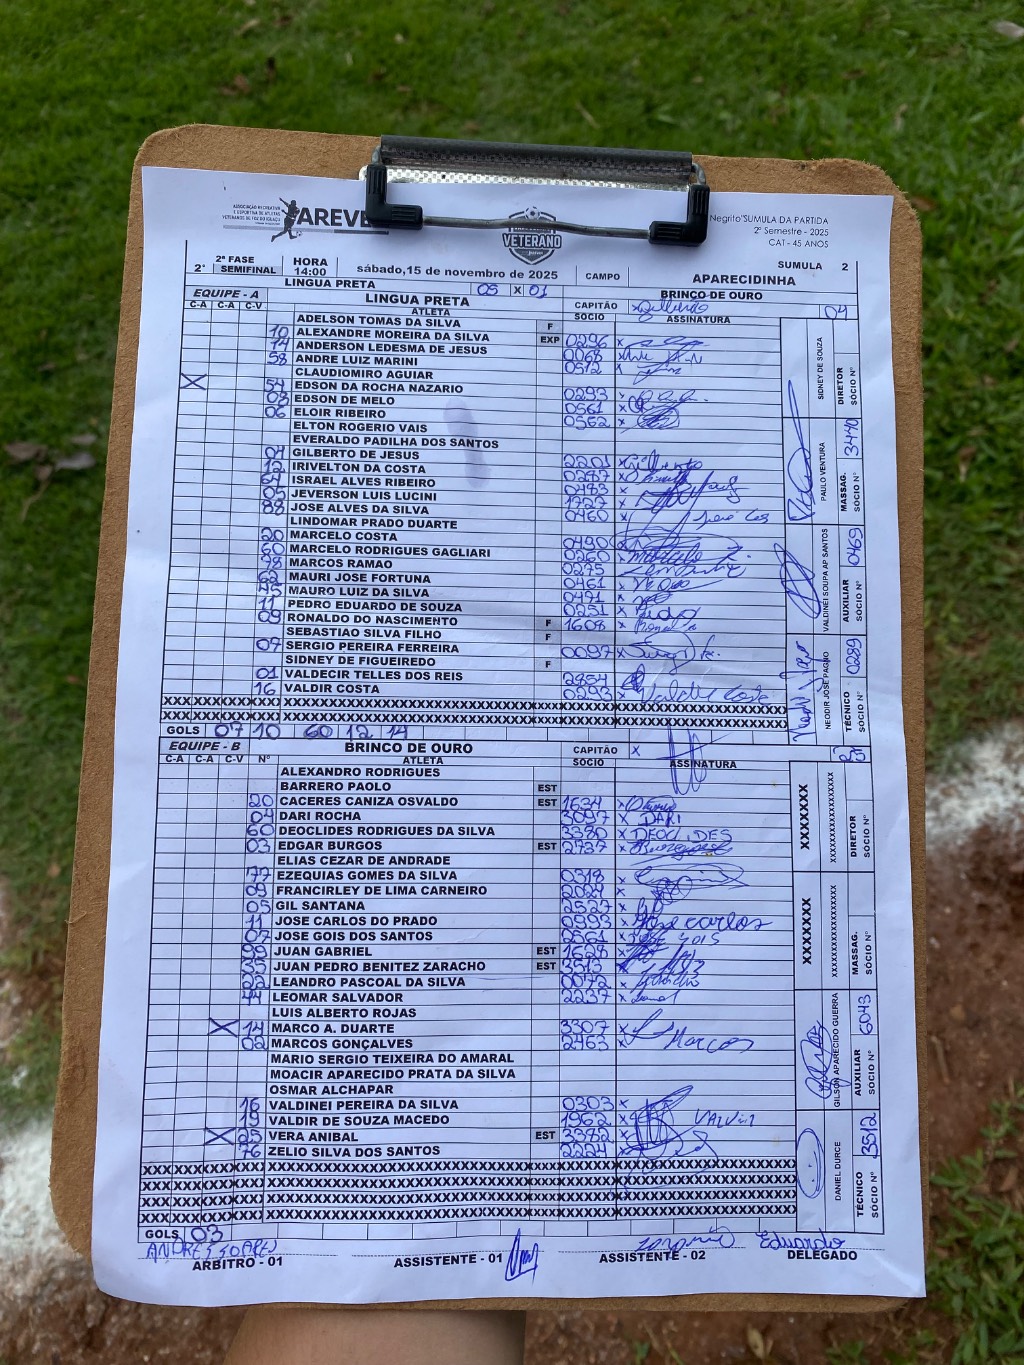 ASSOCIAÇÃO RECREATIVA
E ESPORTIVA DE ATLETAS
VETERANOS DE FOZ DO IGUAÇU
AREVE
VETERANO
Negrito"SUMULA DA PARTIDA
2º Semestre - 2025
CAT - 45 ANOS
2ª FASE HORA SUMULA 2
2° SEMIFINAL 14:00 sábado,15 de novembro de 2025 CAMPO APARECIDINHA
LINGUA PRETA 05 X 01 BRINCO DE OURO
EQUIPE - A LINGUA PRETA CAPITÃO 04
C-A C-A C-V ATLETA SOCIO ASSINATURA
ADELSON TOMAS DA SILVA F
10 ALEXANDRE MOREIRA DA SILVA EXP 0296 x
14 ANDERSON LEDESMA DE JESUS 0068 x
58 ANDRE LUIZ MARINI 0512 x
CLAUDIOMIRO AGUIAR
X 54 EDSON DA ROCHA NAZARIO 0293 x
03 EDSON DE MELO 0561 x
06 ELOIR RIBEIRO 0562 x
ELTON ROGERIO VAIS
EVERALDO PADILHA DOS SANTOS
04 GILBERTO DE JESUS 2201 x Gilberto
12 IRIVELTON DA COSTA 0287 x
64 ISRAEL ALVES RIBEIRO 0483 x
05 JEVERSON LUIS LUCINI 1727 x
88 JOSE ALVES DA SILVA 0460 x
LINDOMAR PRADO DUARTE
20 MARCELO COSTA 0490
60 MARCELO RODRIGUES GAGLIARI 0260 x
98 MARCOS RAMAO 0275
62 MAURI JOSE FORTUNA 0461 x
45 MAURO LUIZ DA SILVA 0491 x
11 PEDRO EDUARDO DE SOUZA 0251 x Pedro
09 RONALDO DO NASCIMENTO F 1608 x
SEBASTIAO SILVA FILHO F
07 SERGIO PEREIRA FERREIRA 0097 x
SIDNEY DE FIGUEIREDO F
01 VALDECIR TELLES DOS REIS 2854
16 VALDIR COSTA 0293 x Valdir Costa
GOLS 07 10 60 12 14
SIDNEY DE SOUZA DIRETOR SÓCIO Nº
PAULO VENTURA MASSAG. SÓCIO Nº 3440
VALDINEI SOUPA AP SANTOS AUXILIAR SÓCIO Nº 0469
NEODIR JOSE PAGNO TÉCNICO SÓCIO Nº 0289
EQUIPE - B BRINCO DE OURO CAPITÃO X 23
C-A C-A C-V Nº ATLETA SOCIO ASSINATURA
ALEXANDRO RODRIGUES
BARRERO PAOLO EST
20 CACERES CANIZA OSVALDO EST 1634 x
04 DARI ROCHA 3097 x DARI
60 DEOCLIDES RODRIGUES DA SILVA 3380 x DEOCLIDES
03 EDGAR BURGOS EST 2737 x
ELIAS CEZAR DE ANDRADE
77 EZEQUIAS GOMES DA SILVA 0318 x
09 FRANCIRLEY DE LIMA CARNEIRO 2024 x
05 GIL SANTANA 2527 x
11 JOSE CARLOS DO PRADO 0993 x José carlos
07 JOSE GOIS DOS SANTOS 2561 x JOSE GOIS
99 JUAN GABRIEL EST 1628 x
35 JUAN PEDRO BENITEZ ZARACHO EST 3513 x
22 LEANDRO PASCOAL DA SILVA 0072 x
44 LEOMAR SALVADOR 2237 x
LUIS ALBERTO ROJAS
X 14 MARCO A. DUARTE 3307 x
02 MARCOS GONÇALVES 2463 x Marcos
MARIO SERGIO TEIXEIRA DO AMARAL
MOACIR APARECIDO PRATA DA SILVA
OSMAR ALCHAPAR
16 VALDINEI PEREIRA DA SILVA 0303 x
19 VALDIR DE SOUZA MACEDO 1962 x VALDIR
X 25 VERA ANIBAL EST 3382 x
76 ZELIO SILVA DOS SANTOS 2224 x
GOLS 03
DIRETOR SÓCIO Nº
MASSAG. SÓCIO Nº
GILSON APARECIDO GUERRA AUXILIAR SÓCIO Nº 6043
DANIEL DURCE TÉCNICO SÓCIO Nº 3512
ANDRE SOARES Eduardo
ARBITRO - 01 ASSISTENTE - 01 ASSISTENTE - 02 DELEGADO